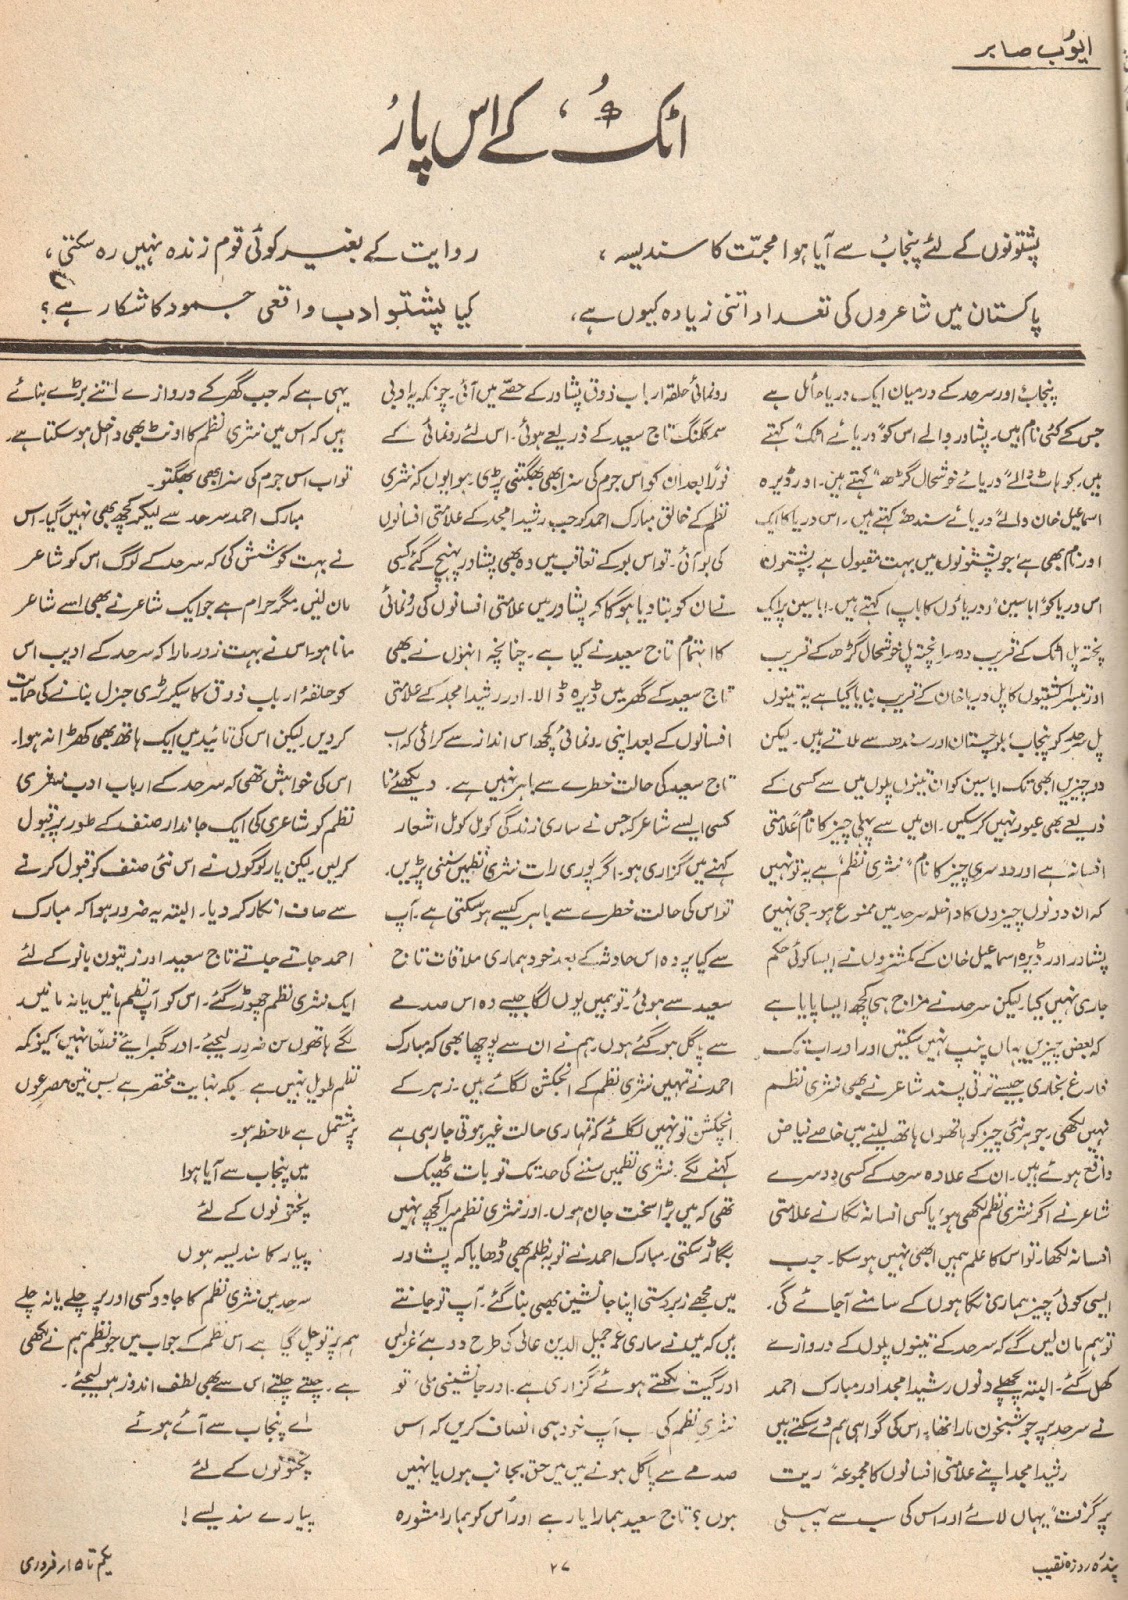 ایوب صابر
اٹک کے اس پار
پشتونوں کے لئے پنجاب سے آیا ہوا محبّت کا سندیسہ،
روایت کے بغیر کوئی قوم زندہ نہیں رہ سکتی،
پاکستان میں شاعروں کی تعداد اتنی زیادہ کیوں ہے،
کیا پشتو ادب واقعی جمود کا شکار ہے؟
پنجاب اور سرحد کے درمیان ایک دریا حائل ہے
جس کے کئی نام ہیں۔ پشاور والے اس کو "دریائے اٹک" کہتے
ہیں۔ کوہاٹ والے "دریائے خوشحال گڑھ" کہتے ہیں۔ اور ڈیرہ
اسماعیل خان والے "دریائے سندھ" کہتے ہیں۔ اس دریا کا ایک
اور نام بھی ہے جو پشتونوں میں بہت مقبول ہے پشتون
اس دریا کو "اباسین" (دریاؤں کا باپ) کہتے ہیں۔ اباسین پر ایک
پختہ پل اٹک کے قریب دوسرا پختہ پل خوشحال گڑھ کے قریب
اور تیسرا کشتیوں کا پل دریا خان کے قریب بنایا گیا ہے یہ تینوں
پل سرحد کو پنجاب، بلوچستان اور سندھ سے ملاتے ہیں۔ لیکن
دو چیزیں ابھی تک اباسین کو ان تینوں پلوں میں سے کسی کے
ذریعے بھی عبور نہیں کر سکیں۔ ان میں سے پہلی چیز کا نام "علامتی
افسانہ" ہے اور دوسری چیز کا نام "نثری نظم" ہے یہ تو نہیں
کہ ان دونوں چیزوں کا داخلہ سرحد میں ممنوع ہو۔ جی نہیں
پشاور اور ڈیرہ اسماعیل خان کے کمشنروں نے ایسا کوئی حکم
جاری نہیں کیا۔ لیکن سرحد نے مزاج ہی کچھ ایسا پایا ہے
کہ بعض چیزیں یہاں پنپ نہیں سکتیں اور اور اب تک
فارغ بخاری جیسے ترقی پسند شاعر نے بھی نثری نظم
نہیں لکھی۔ جو ہر نئی چیز کو ہاتھوں ہاتھ لینے میں خاصے فیاض
واقع ہوئے ہیں۔ ان کے علاوہ سرحد کے کسی دوسرے
شاعر نے اگر نثری نظم لکھی ہو، یا کسی افسانہ نگار نے علامتی
افسانہ لکھا، تو اس کا علم ہمیں ابھی نہیں ہو سکا۔ جب
ایسی کوئی چیز ہماری نگاہوں کے سامنے آ جائے گی۔
تو ہم مان لیں گے کہ سرحد کے تینوں پلوں کے دروازے
کھل گئے۔ البتہ پچھلے دنوں رشید امجد اور مبارک احمد
نے سرحد پر جو شبخون مارا تھا، اس کی گواہی ہم دے سکتے ہیں
رشید امجد اپنے علامتی افسانوں کا مجموعہ "ریت
پر گرفت" یہاں لائے اور اس کی سب سے پہلی
رونمائی حلقہ ارباب ذوق پشاور کے حصّے میں آئی۔ چونکہ یہ ادبی
سمگلنگ تاج سعید کے ذریعے ہوئی۔ اس لئے رونمائی کے
فوراً بعد ان کو اس جرم کی سزا بھی بھگتنی پڑی۔ ہوا یوں کہ نثری
نظم کے خالق مبارک احمد کو جب رشید امجد کے علامتی افسانوں
کی بو آئی۔ تو اس بو کے تعاقب میں وہ بھی پشاور پہنچ گئے کسی
نے ان کو بتا دیا ہوگا کہ پشاور میں علامتی افسانوں کی رونمائی
کا اہتمام تاج سعید نے کیا ہے۔ چنانچہ انہوں نے بھی
تاج سعید کے گھر میں ڈیرہ ڈالا۔ اور رشید امجد کے علامتی
افسانوں کے بعد اپنی رونمائی کچھ اس انداز سے کرائی کہ اب
تاج سعید کی حالت خطرے سے باہر نہیں ہے۔ دیکھئے نا
کسی ایسے شاعر کو جس نے ساری زندگی کومل کومل اشعار
کہنے میں گزاری ہو۔ اگر پوری رات نثری نظمیں سننی پڑیں۔
تو اس کی حالت خطرے سے باہر کیسے ہو سکتی ہے۔ آپ
سے کیا پردہ اس حادثہ کے بعد خود ہماری ملاقات تاج
سعید سے ہوئی۔ تو ہمیں یوں لگا جیسے وہ اس صدمے
سے پاگل ہو گئے ہوں۔ ہم نے ان سے پوچھا بھی کہ مبارک
احمد نے تمہیں نثری نظم کے انجکشن لگائے ہیں۔ زہر کے
انجکشن تو نہیں لگائے کہ تمہاری حالت غیر ہوتی جا رہی ہے
کہنے لگے۔ نثری نظمیں سننے کی حد تک تو بات ٹھیک
تھی کہ میں بڑا سخت جان ہوں۔ اور نثری نظم میرا کچھ نہیں
بگاڑ سکتی۔ مبارک احمد نے تو یہ ظلم بھی ڈھایا کہ پشاور
میں مجھے زبردستی اپنا جانشین بھی بنا گئے۔ آپ تو جانتے
ہیں کہ میں نے ساری عمر جمیل الدین عالی کی طرح دوہے، غزلیں
اور گیت لکھتے ہوئے گزاری ہے۔ اور جانشینی ملی، تو
نثری نظم کی۔ اب آپ خود ہی انصاف کریں کہ اس
صدمے سے پاگل ہونے میں میں حق بجانب ہوں یا نہیں
ہوں؟ تاج سعید ہمارا یار ہے اور اُس کو ہمارا مشورہ
یہی ہے کہ جب گھر کے دروازے اتنے بڑے بنائے
ہیں کہ اس میں نثری نظم کا اونٹ بھی داخل ہو سکتا ہے۔
تو اب اس جرم کی سزا بھی بھگتو۔
مبارک احمد سرحد سے لیکر کچھ بھی نہیں گیا۔ اس
نے بہت کوشش کی کہ سرحد کے لوگ اس کو شاعر
مان لیں مگر حرام ہے جو ایک شاعر نے بھی اسے شاعر
مانا ہو۔ اس نے بہت زور مارا کہ سرحد کے ادیب اس
کو حلقۂ ارباب ذوق کا سیکرٹری جنرل بنانے کی حمایت
کر دیں۔ لیکن اس کی تائید میں ایک ہاتھ بھی کھڑا نہ ہوا۔
اس کی خواہش تھی کہ سرحد کے ارباب ادب نثری
نظم کو شاعری کی ایک جاندار صنف کے طور پر قبول
کر لیں۔ لیکن یار لوگوں نے اس نئی صنف کو قبول کرنے
سے صاف انکار کر دیا۔ البتہ یہ ضرور ہوا کہ مبارک
احمد جاتے جاتے تاج سعید اور زیتون بانو کے لئے
ایک نثری نظم چھوڑ گئے۔ اس کو آپ نظم مانیں یا نہ مانیں
لگے ہاتھوں سن نہ در لیجئے۔ اور گھبرائیے قطعاً نہیں، کیونکہ
نظم طویل نہیں ہے بلکہ نہایت مختصر ہے بس تین مصرعوں
پر مشتمل ہے ملاحظہ ہو۔
میں پنجاب سے آیا ہوا
پختونوں کے لئے
پیار کا سندیسہ ہوں
سرحد میں نثری نظم کا جادو کسی اور پر چلے یا نہ چلے
ہم پر تو چل گیا ہے۔ اس نظم کے جواب میں جو نظم ہم نے لکھی
ہے۔ چلتے چلتے اس سے بھی لطف اندوز ہو لیجئے۔
اے پنجاب سے آئے ہوئے
پختونوں کے لئے
پیارے سندیسے!
پندرہ روزہ نقیب
۲۷
یکم تا ۱۵ ار فروری